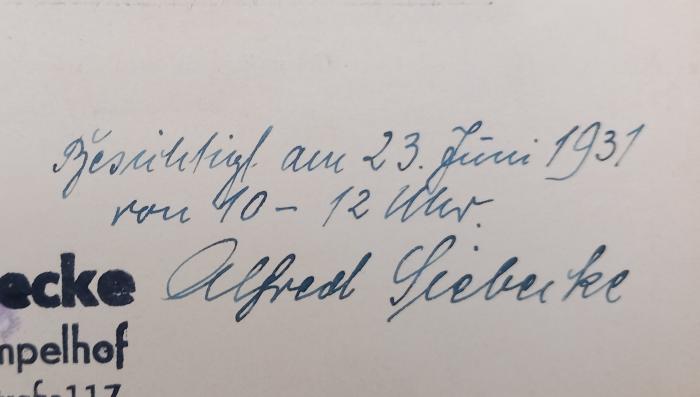 Besichtigt am 23. Juni 1931
von 10 – 12 Uhr.
Alfred Siebecke
ecke
mpelhof
117